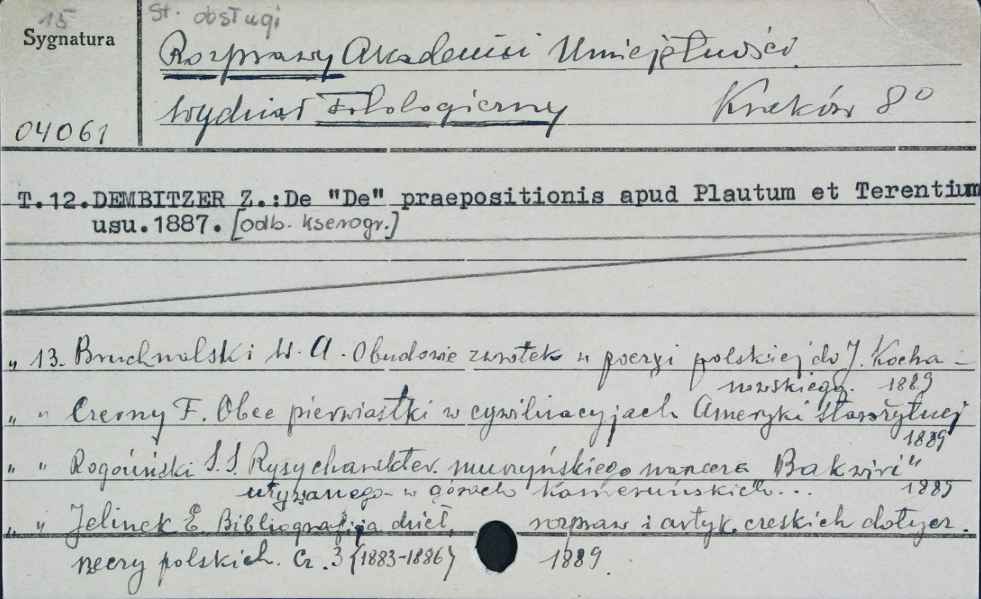 15 St. obsługi
Sygnatura
Rozprawy Akademii Umiejętności.
Wydział Filologiczny Kraków 8°
04061
T.12.DEMBITZER Z.:De "De" praepositionis apud Plautum et Terentium
usu.1887. [odb. kserogr.]
„ 13. Bruchnalski W. A. O budowie zwrotek w poezyi polskiej do J. Kocha-
nowskiego. 1889
„ „ Czerny F. Obce pierwiastki w cywilizacyjach Ameryki starożytnej
1889
„ „ Rogoziński S. S. Rys charakter. murzyńskiego narzecza Bakwiri"
używanego w górach Kameruńskich... 1885
„ „ Jelinek E. Bibliografija dzieł, rozpraw i artyk. czeskich dotycz.
rzeczy polskich. Cz. 3 (1883-1886) 1889.